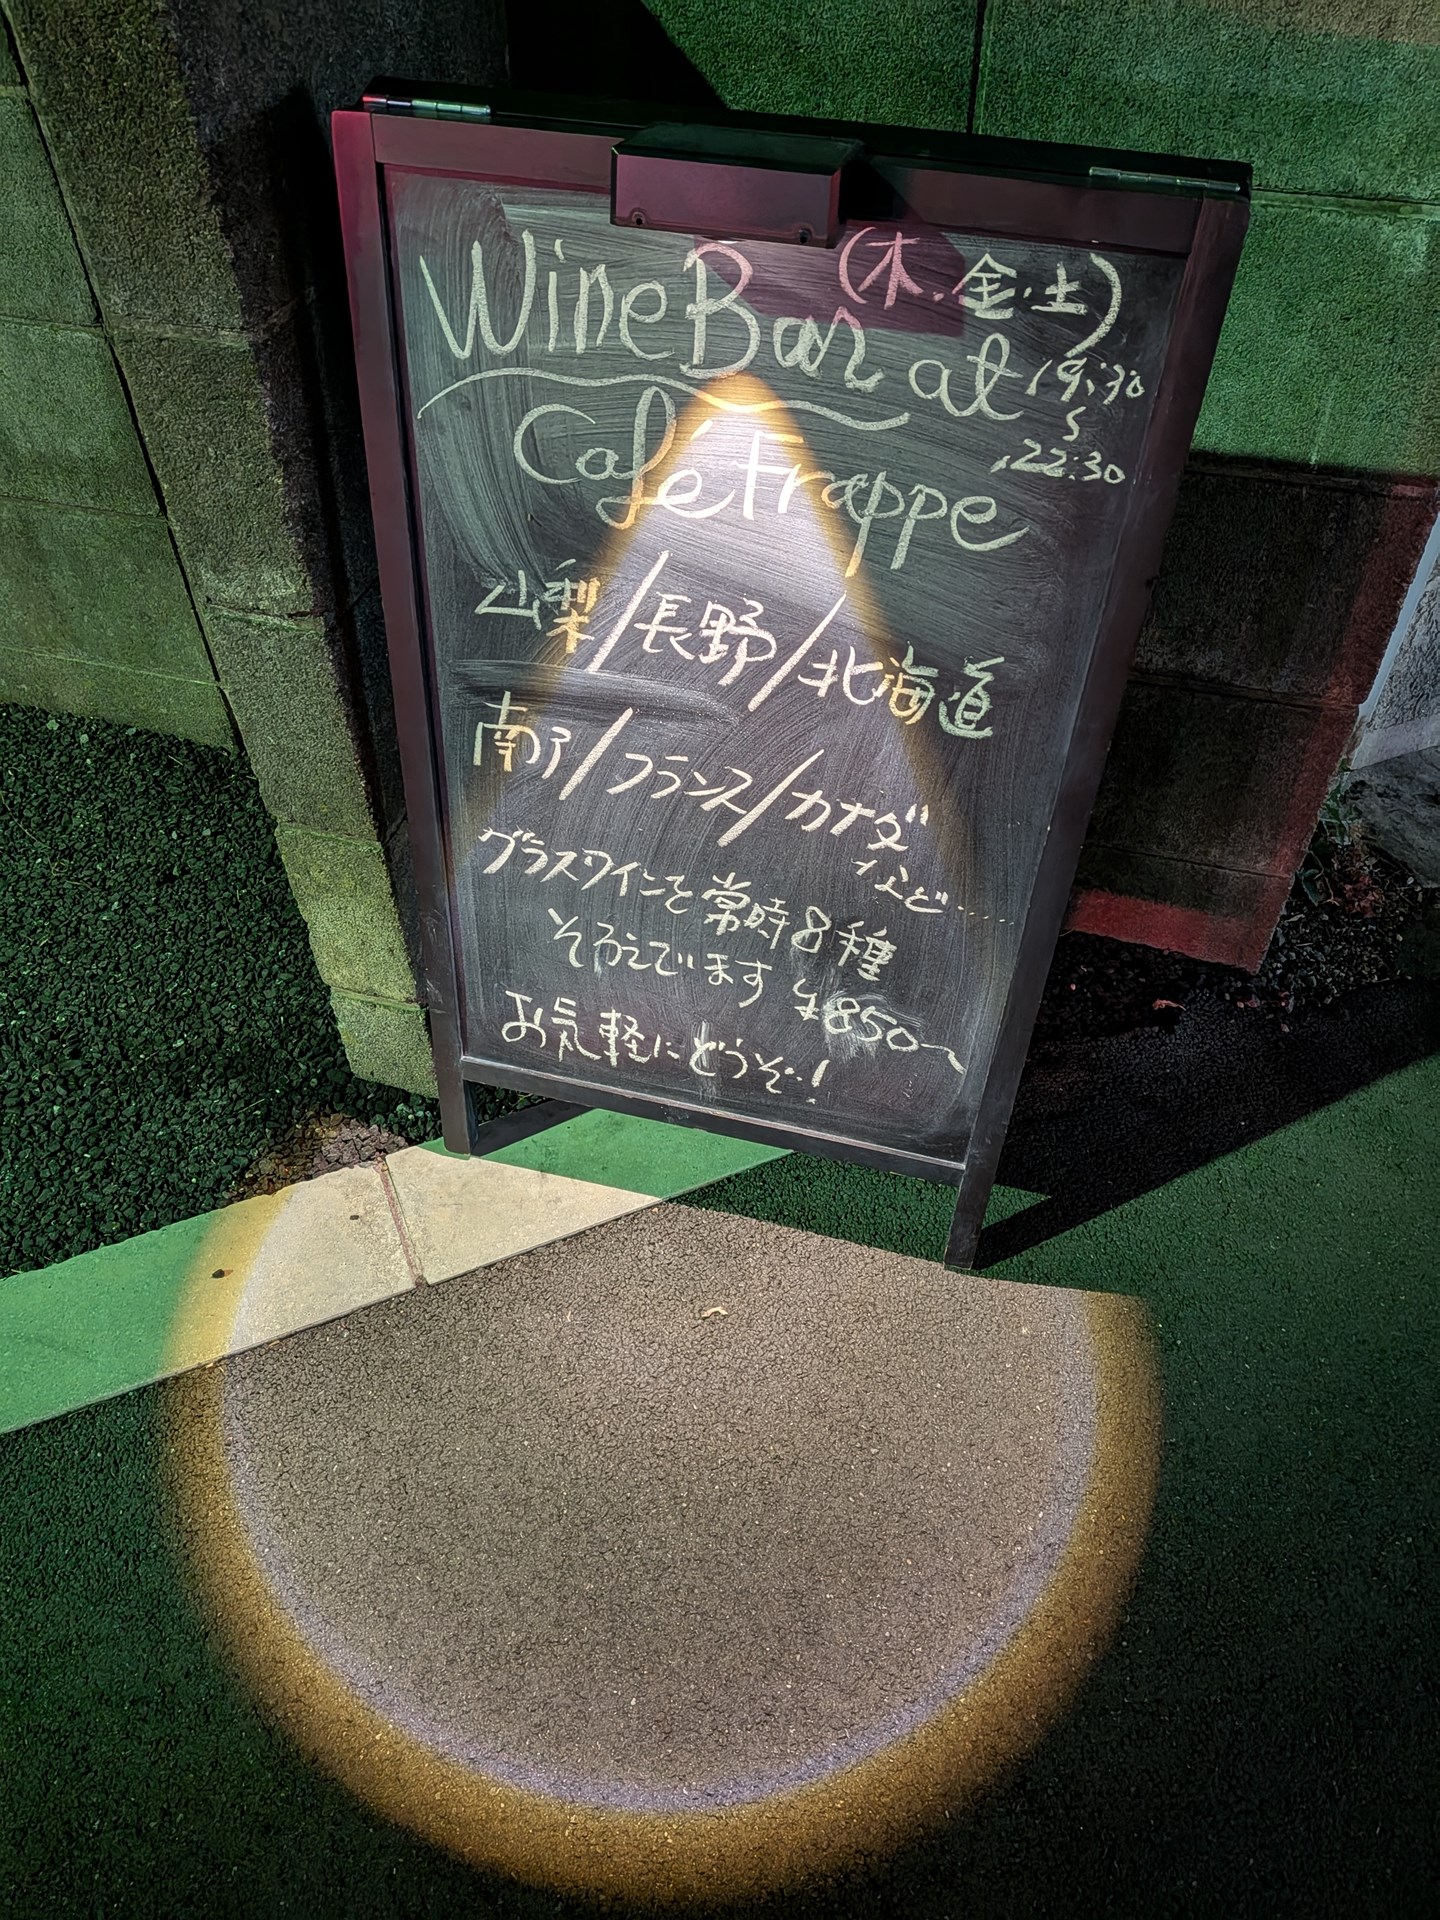 Wine Bar (木・金・土)
at 19:30
〜
22:30
Café Frappe
山梨/長野/北海道
南ア/フランス/カナダ
など……
グラスワインを常時8種
そろえています ¥850〜
お気軽にどうぞ!